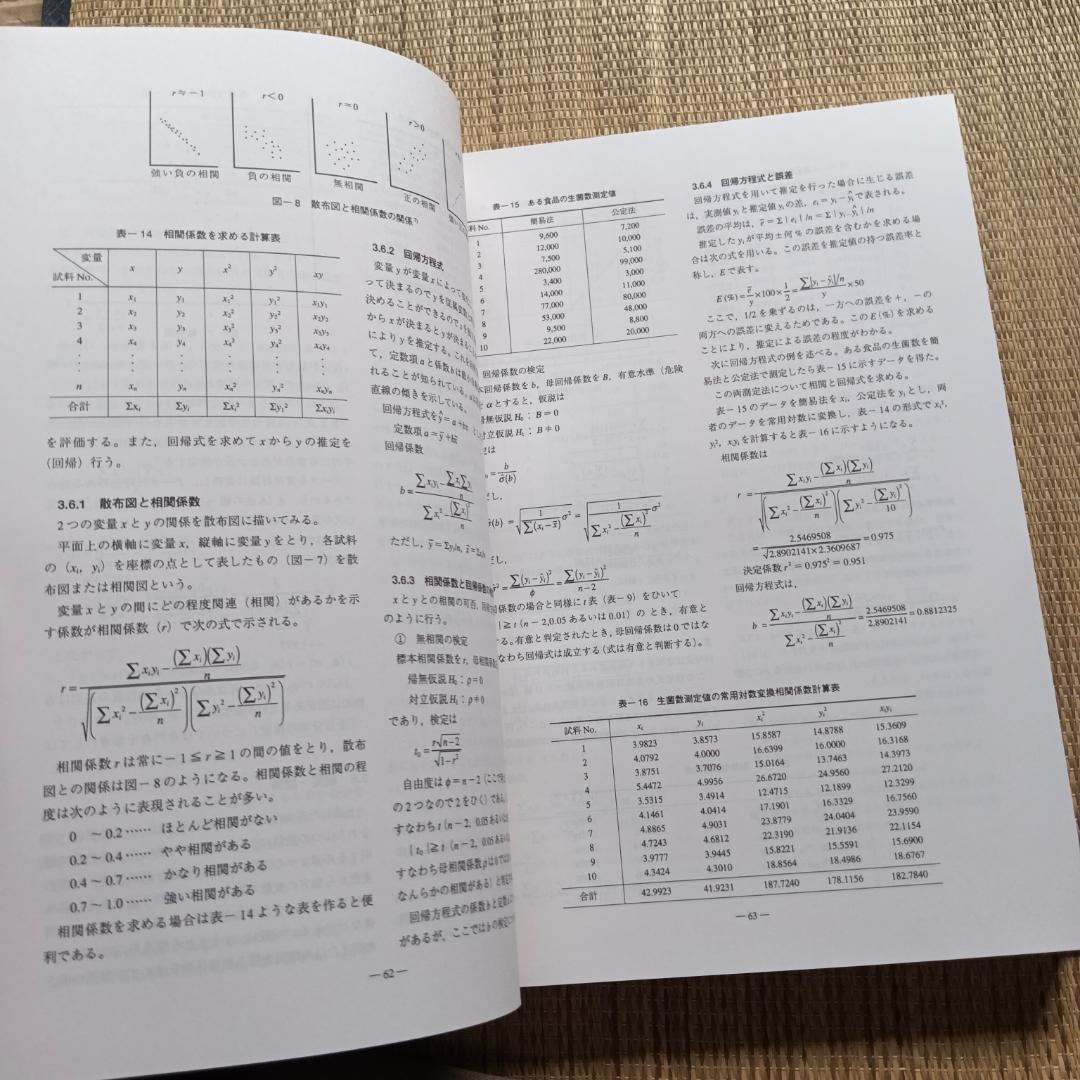 r≒−1
r<0
r=0
r>0
強い負の相関
負の相関
無相関
正の相関
図−8 散布図と相関係数の関係
表−14 相関係数を求める計算表
変量
試料 No. x y x² y² xy
1 x₁ y₁ x₁² y₁² x₁y₁
2 x₂ y₂ x₂² y₂² x₂y₂
3 x₃ y₃ x₃² y₃² x₃y₃
4 x₄ y₄ x₄² y₄² x₄y₄
n xₙ yₙ xₙ² yₙ² xₙyₙ
合計 Σxᵢ Σyᵢ Σxᵢ² Σyᵢ² Σxᵢyᵢ
を評価する。また，回帰式を求めて x から y の推定を
（回帰）行う。
3.6.1 散布図と相関係数
2つの変量 x と y の関係を散布図に描いてみる。
平面上の横軸に変量 x，縦軸に変量 y をとり，各試料
の（xᵢ, yᵢ）を座標の点として表したもの（図−7）を散
布図または相関図という。
変量 x と y の間にどの程度関連（相関）があるかを示
す係数が相関係数（r）で次の式で示される。
r = (Σxᵢyᵢ − (Σxᵢ)(Σyᵢ)/n) / √(Σxᵢ² − (Σxᵢ)²/n)(Σyᵢ² − (Σyᵢ)²/n)
相関係数 r は常に−1≦r≧1の間の値をとり，散布
図との関係は図−8のようになる。相関係数と相関の程
度は次のように表現されることが多い。
0 〜0.2…… ほとんど相関がない
0.2〜0.4…… やや相関がある
0.4〜0.7…… かなり相関がある
0.7〜1.0…… 強い相関がある
相関係数を求める場合は表−14ような表を作ると便
利である。
3.6.2 回帰方程式
変量 y が変量 x によって
って決まるので y を従属変数
決めることができるので
から x が決まると y が決まる
により y を推定する。これを
て，定数項 a と係数 b は
れることが知られている。
直線の傾きを示している。
回帰方程式を ŷ=a+bx
定数項 a=ȳ+bx̄
回帰係数
b = (Σxᵢyᵢ − ΣxᵢΣyᵢ/n) / (Σxᵢ² − (Σxᵢ)²/n)
ただし，ȳ=Σyᵢ/n,
3.6.3 相関係数と回帰係数
x と y との相関の可否，
のように行う。
① 無相関の検定
標本相関係数を r，母相関係数
帰無仮説 H₀：ρ=0
対立仮説 H₁：ρ≠0
であり，検定は
t₀ = r√n−2 / √1−r²
自由度は φ=n−2（ここで
の2つなので2をひく）であ
すなわち t（n−2, 0.05あるいは
|t₀|≧t（n−2, 0.05
すなわち母相関係数 ρ は0では
なんらかの相関がある）と
回帰方程式の係数 b と定数
があるが，ここでは b の検定
—62—
表−15 ある食品の生菌数測定値
料 No. 簡易法 公定法
1 9,600 7,200
2 12,000 10,000
3 7,500 5,100
4 280,000 99,000
5 3,400 3,000
6 14,000 11,000
7 77,000 80,000
8 53,000 48,000
9 9,500 8,800
10 22,000 20,000
回帰係数の検定
回帰係数を b，母回帰係数を B，有意水準（危険
α とすると，仮説は
帰無仮説 H₀：B=0
対立仮説 H₁：B≠0
は
= b / σ̂(b)
だし，
(b) = √(1 / Σ(xᵢ−x̄)² σ²) = √(1 / (Σxᵢ² − (Σxᵢ)²/n) σ²)
だし，
² = Σ(yᵢ−ŷᵢ)² / φ = Σ(yᵢ−ŷᵢ)² / n−2
係数の場合と同様に t 表（表−9）をひいて
|≧t（n−2,0.05 あるいは0.01）の とき，有意と
る。有意と判定されたとき，母回帰係数は0ではな
なわち回帰式は成立する（式は有意と判断する）。
3.6.4 回帰方程式と誤差
回帰方程式を用いて推定を行った場合に生じる誤差
は，実測値 yᵢ と推定値 ŷᵢ の差，eᵢ=yᵢ−ŷᵢ で表される。
誤差の平均は，ē=Σ|eᵢ|/n=Σ|yᵢ−ŷᵢ|/n
推定した yᵢ が平均±何％の誤差を含むかを求める場
合は次の式を用いる。この誤差を推定値の持つ誤差率と
称し，E で表す。
E(%) = ē/y × 100 × 1/2 = Σ|yᵢ−ŷᵢ|/n / y × 50
ここで，1/2を乗ずるのは，一方への誤差を＋，−の
両方への誤差に変えるためである。この E（％）を求める
ことにより，推定による誤差の程度がわかる。
次に回帰方程式の例を述べる。ある食品の生菌数を簡
易法と公定法で測定したら表−15に示すデータを得た。
この両測定法について相関と回帰式を求める。
表−15のデータを簡易法を xᵢ，公定法を yᵢ とし，両
者のデータを常用対数に変換し，表−14の形式で xᵢ²,
yᵢ², xᵢyᵢ を計算すると表−16に示すようになる。
相関係数は
r = (Σxᵢyᵢ − (Σxᵢ)(Σyᵢ)/n) / √(Σxᵢ² − (Σxᵢ)²/n)(Σyᵢ² − (Σyᵢ)²/10)
= 2.5469508 / √2.8902141×2.3609687 = 0.975
決定係数 r²=0.975²=0.951
回帰方程式は，
b = (Σxᵢyᵢ − (Σxᵢ)(Σyᵢ)/n) / (Σxᵢ² − (Σxᵢ)²/n) = 2.5469508 / 2.8902141 = 0.8812325
表−16 生菌数測定値の常用対数変換相関係数計算表
試料 No. xᵢ yᵢ xᵢ² yᵢ² xᵢyᵢ
1 3.9823 3.8573 15.8587 14.8788 15.3609
2 4.0792 4.0000 16.6399 16.0000 16.3168
3 3.8751 3.7076 15.0164 13.7463 14.3973
4 5.4472 4.9956 26.6720 24.9560 27.2120
5 3.5315 3.4914 12.4715 12.1899 12.3299
6 4.1461 4.0414 17.1901 16.3329 16.7560
7 4.8865 4.9031 23.8779 24.0404 23.9590
8 4.7243 4.6812 22.3190 21.9136 22.1154
9 3.9777 3.9445 15.8221 15.5591 15.6900
10 4.3424 4.3010 18.8564 18.4986 18.6767
合計 42.9923 41.9231 187.7240 178.1156 182.7840
—63—